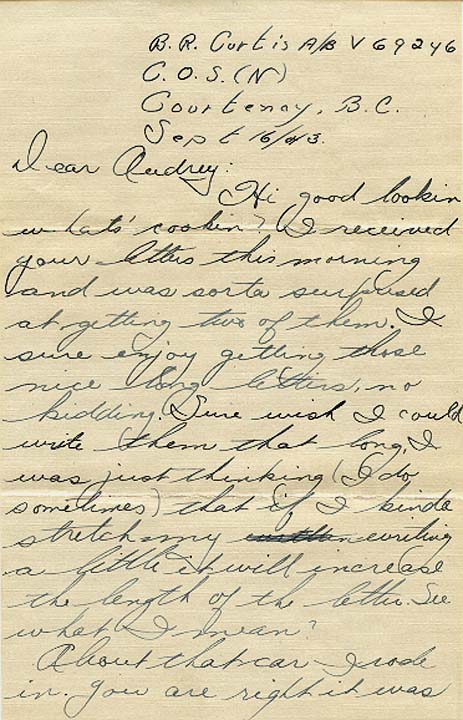 B.R. Curtis A/B V 69246
C.O.S.(N)
Courtenay, B.C.
Sept 16/43.
Dear Audrey:
Hi good lookin
whats' cookin? I received
your letters this morning
and was sorta surprised
at getting two of them. I
sure enjoy getting those
nice long letters, no
kidding. Sure wish I could
write them that long. I
was just thinking (I do
sometimes) that if I kinda
stretch my writing
a little it will increase
the length of the letter. See
what I mean?
About that car I rode
in. You are right it was